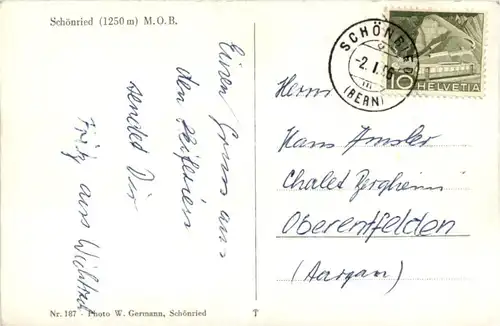 Schönried (1250 m) M.O.B.
Einen Gruss aus
den Skiferien
sendet Dir
Fritz aus
Nr. 187 - Photo W. Germann, Schönried
T
SCHÖNRIED
-2.I.
(BERN)
10
HELVETIA
Herrn
Hans Amsler
Chalet Bergheim
Oberentfelden
(Aargau)